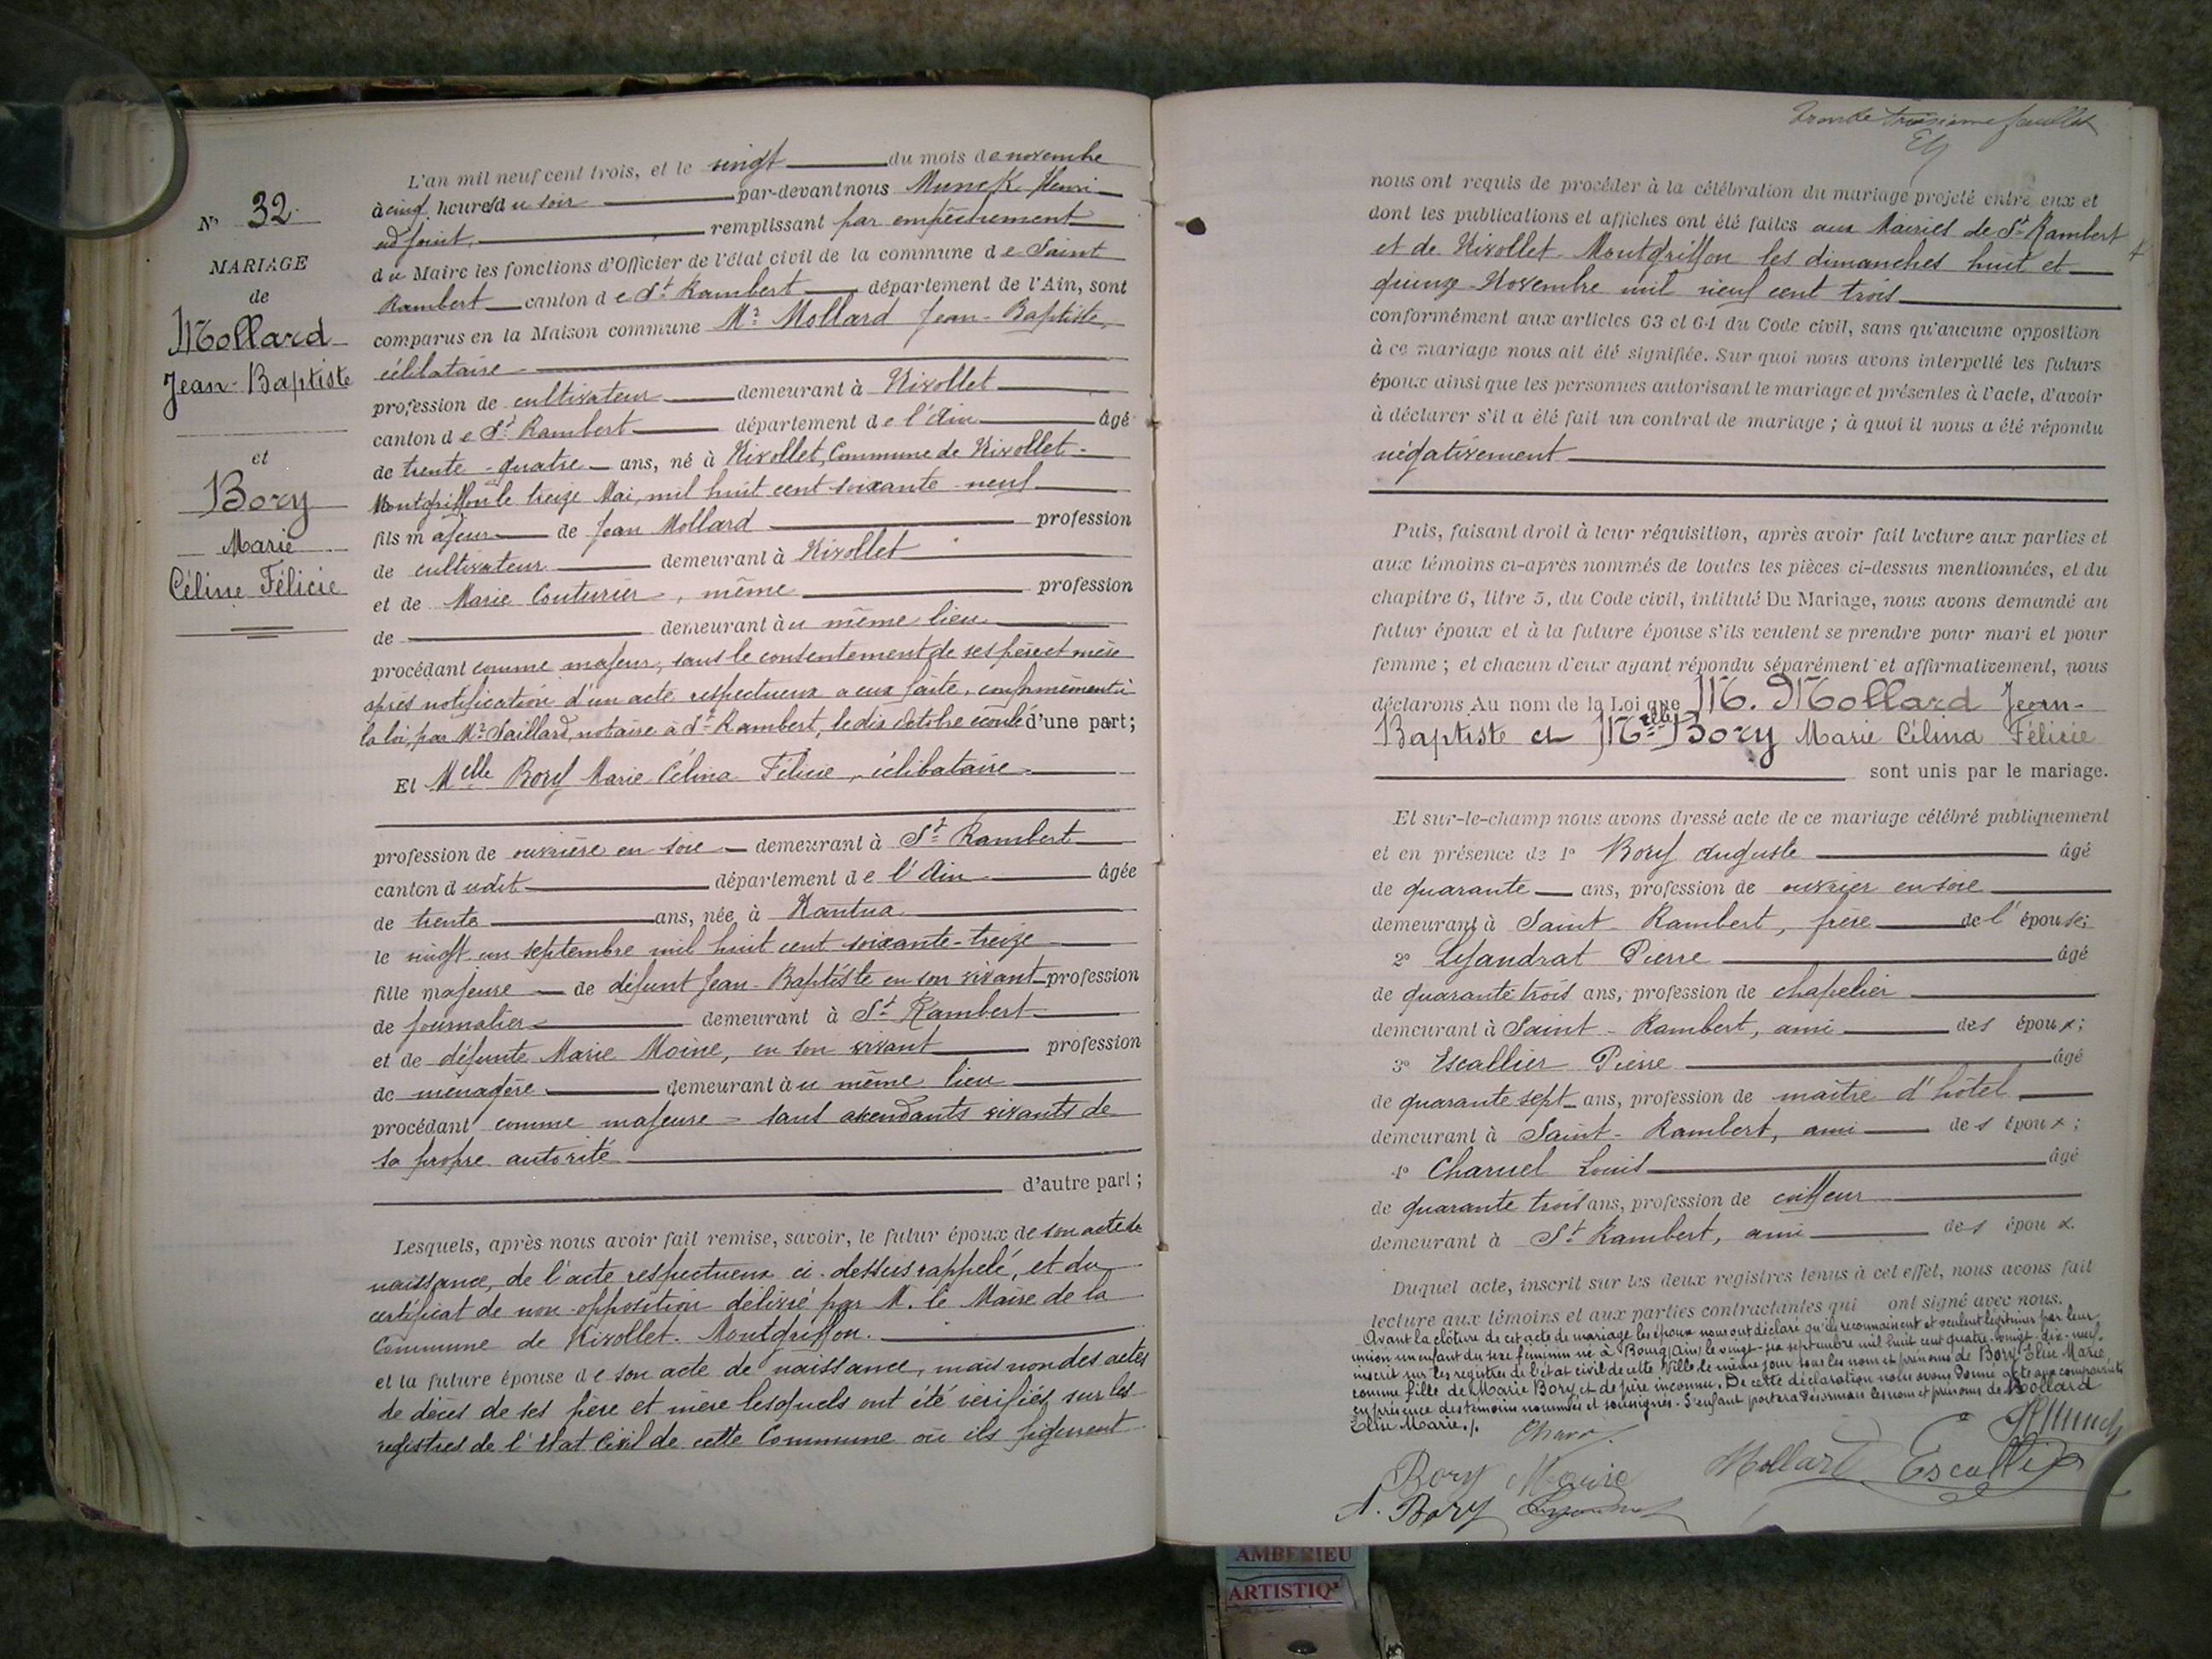 N° 32
MARIAGE
de
Mollard
Jean-Baptiste
et
Bory
Marie
Céline Félicie
L'an mil neuf cent trois, et le vingt du mois de novembre
à cinq heures du soir par-devant nous Munck Henri
adjoint, remplissant par empêchement
du Maire les fonctions d'Officier de l'état civil de la commune de Saint
Rambert canton de St Rambert département de l'Ain, sont
comparus en la Maison commune Mr Mollard Jean-Baptiste,
célibataire
profession de cultivateur demeurant à Nivollet
canton de St Rambert département de l'Ain âgé
de trente-quatre ans, né à Nivollet, Commune de Nivollet-
Montgriffon le treize Mai, mil huit cent soixante-neuf
fils majeur de Jean Mollard profession
de cultivateur demeurant à Nivollet
et de Marie Couturier, même profession
de demeurant au même lieu
procédant comme majeur, sans le consentement de ses père et mère
après notification d'un acte respectueux à eux faite, conformément à
la loi, par Mr Saillard, notaire à St Rambert, le dix octobre écoulé d'une part;
Et Melle Bory Marie Célina Félicie, célibataire
profession de ouvrière en soie demeurant à St Rambert
canton dudit département de l'Ain âgée
de trente ans, née à Nantua
le vingt un septembre mil huit cent soixante-treize
fille majeure de défunt Jean-Baptiste en son vivant profession
de journalier demeurant à St Rambert
et de défunte Marie Moine, en son vivant profession
de ménagère demeurant au même lieu
procédant comme majeure = sans ascendants vivants de
sa propre autorité
d'autre part;
Lesquels, après nous avoir fait remise, savoir, le futur époux de son acte de
naissance, de l'acte respectueux ci-dessus rappelé, et du
certificat de non-opposition délivré par M. le Maire de la
Commune de Nivollet-Montgriffon.
et la future épouse de son acte de naissance, mais non des actes
de décès de ses père et mère lesquels ont été vérifiés sur les
registres de l'Etat Civil de cette Commune où ils figurent
trente troisième feuillet
nous ont requis de procéder à la célébration du mariage projeté entre eux et
dont les publications et affiches ont été faites aux Mairies de St Rambert
et de Nivollet-Montgriffon les dimanches huit et
quinze Novembre mil neuf cent trois
conformément aux articles 63 et 64 du Code civil, sans qu'aucune opposition
à ce mariage nous ait été signifiée. Sur quoi nous avons interpellé les futurs
époux ainsi que les personnes autorisant le mariage et présentes à l'acte, d'avoir
à déclarer s'il a été fait un contrat de mariage; à quoi il nous a été répondu
négativement
Puis, faisant droit à leur réquisition, après avoir fait lecture aux parties et
aux témoins ci-après nommés de toutes les pièces ci-dessus mentionnées, et du
chapitre 6, titre 5, du Code civil, intitulé Du Mariage, nous avons demandé au
futur époux et à la future épouse s'ils veulent se prendre pour mari et pour
femme; et chacun d'eux ayant répondu séparément et affirmativement, nous
déclarons Au nom de la Loi que M. Mollard Jean-
Baptiste et Melle Bory Marie Célina Félicie
sont unis par le mariage.
Et sur-le-champ nous avons dressé acte de ce mariage célébré publiquement
et en présence de 1° Bory Auguste âgé
de quarante ans, profession de ouvrier en soie
demeurant à Saint-Rambert, frère de l'épouse;
2° Lejandrat Pierre âgé
de quarante trois ans, profession de chapelier
demeurant à Saint-Rambert, ami des époux;
3° Escallier Pierre âgé
de quarante sept ans, profession de maître d'hôtel
demeurant à Saint-Rambert, ami des époux;
4° Charvel Louis âgé
de quarante trois ans, profession de coiffeur
demeurant à St Rambert, ami des époux.
Duquel acte, inscrit sur les deux registres tenus à cet effet, nous avons fait
lecture aux témoins et aux parties contractantes qui ont signé avec nous.
Avant la clôture de cet acte de mariage les époux nous ont déclaré qu'ils reconnaissent et veulent légitimer par leur
union un enfant du sexe féminin né à Bourg (Ain) le vingt-six septembre mil huit cent quatre-vingt-dix-neuf
inscrit sur les registres de l'état civil de cette Ville le même jour sous les nom et prénoms de Bory Elise Marie,
comme fille de Marie Bory et de père inconnu. De cette déclaration nous avons donné acte aux comparants
en présence des témoins nommés et soussignés. L'enfant portera désormais les nom et prénoms de Mollard
Elise Marie./.
HMunck
Bory Marie Mollard Escallier
A. Bory
AMBERIEU
ARTISTIQ